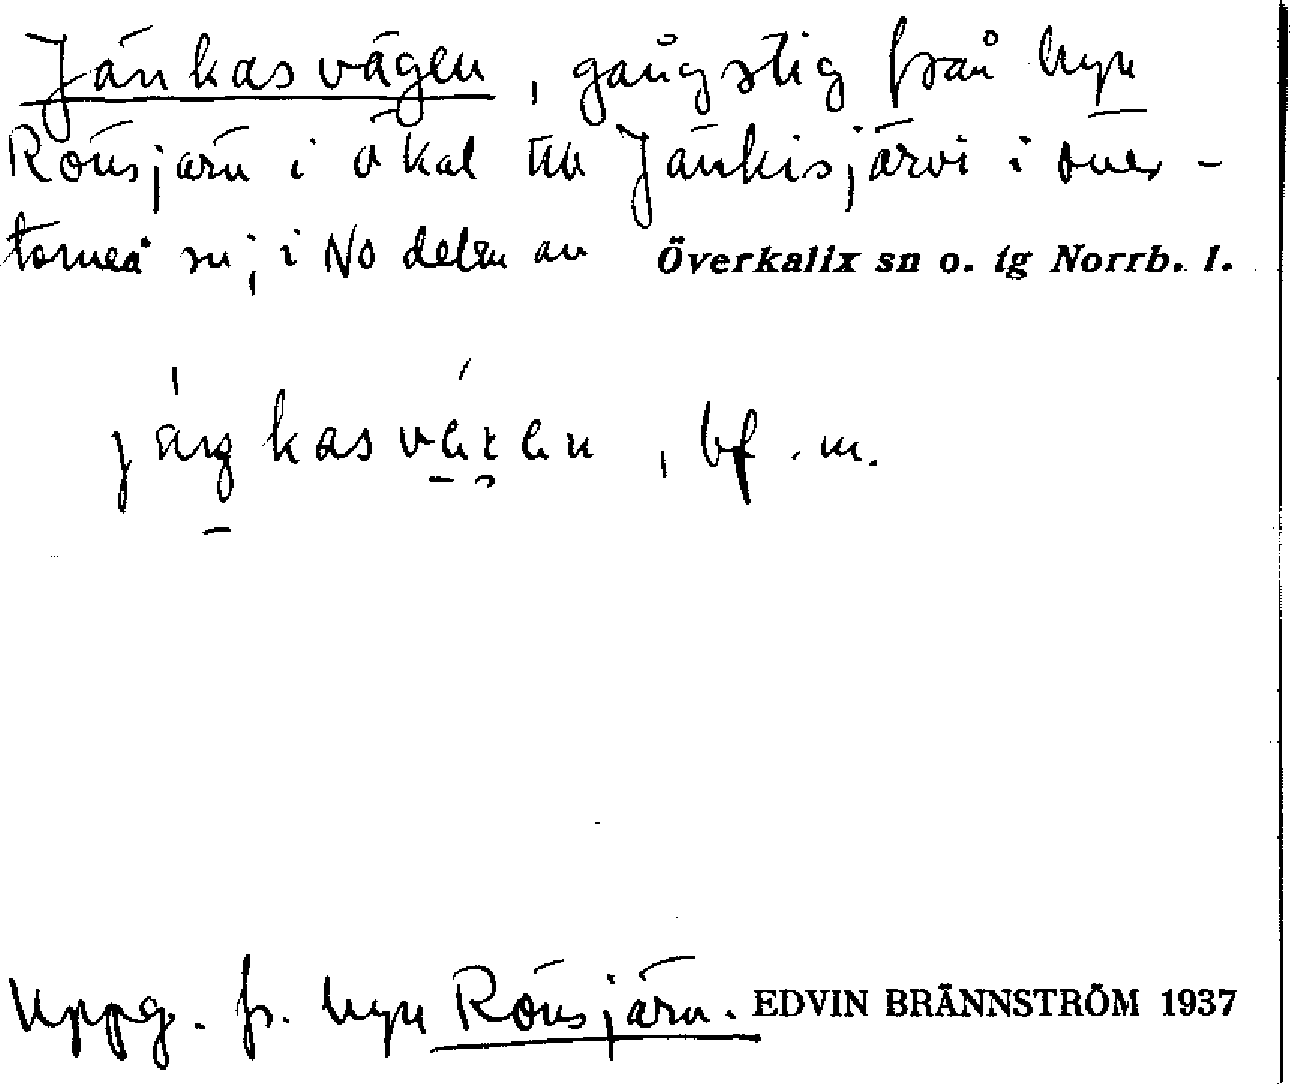 Jänkasvägen, gångstig från byn
Rönsjärn i Ökal till Jänkisjärvi i Över-
torneå sn; i NO delen av Överkalix sn o. tg Norrb. l.
bf. m.
Uppg. fr. byn Rönsjärn. EDVIN BRÄNNSTRÖM 1937